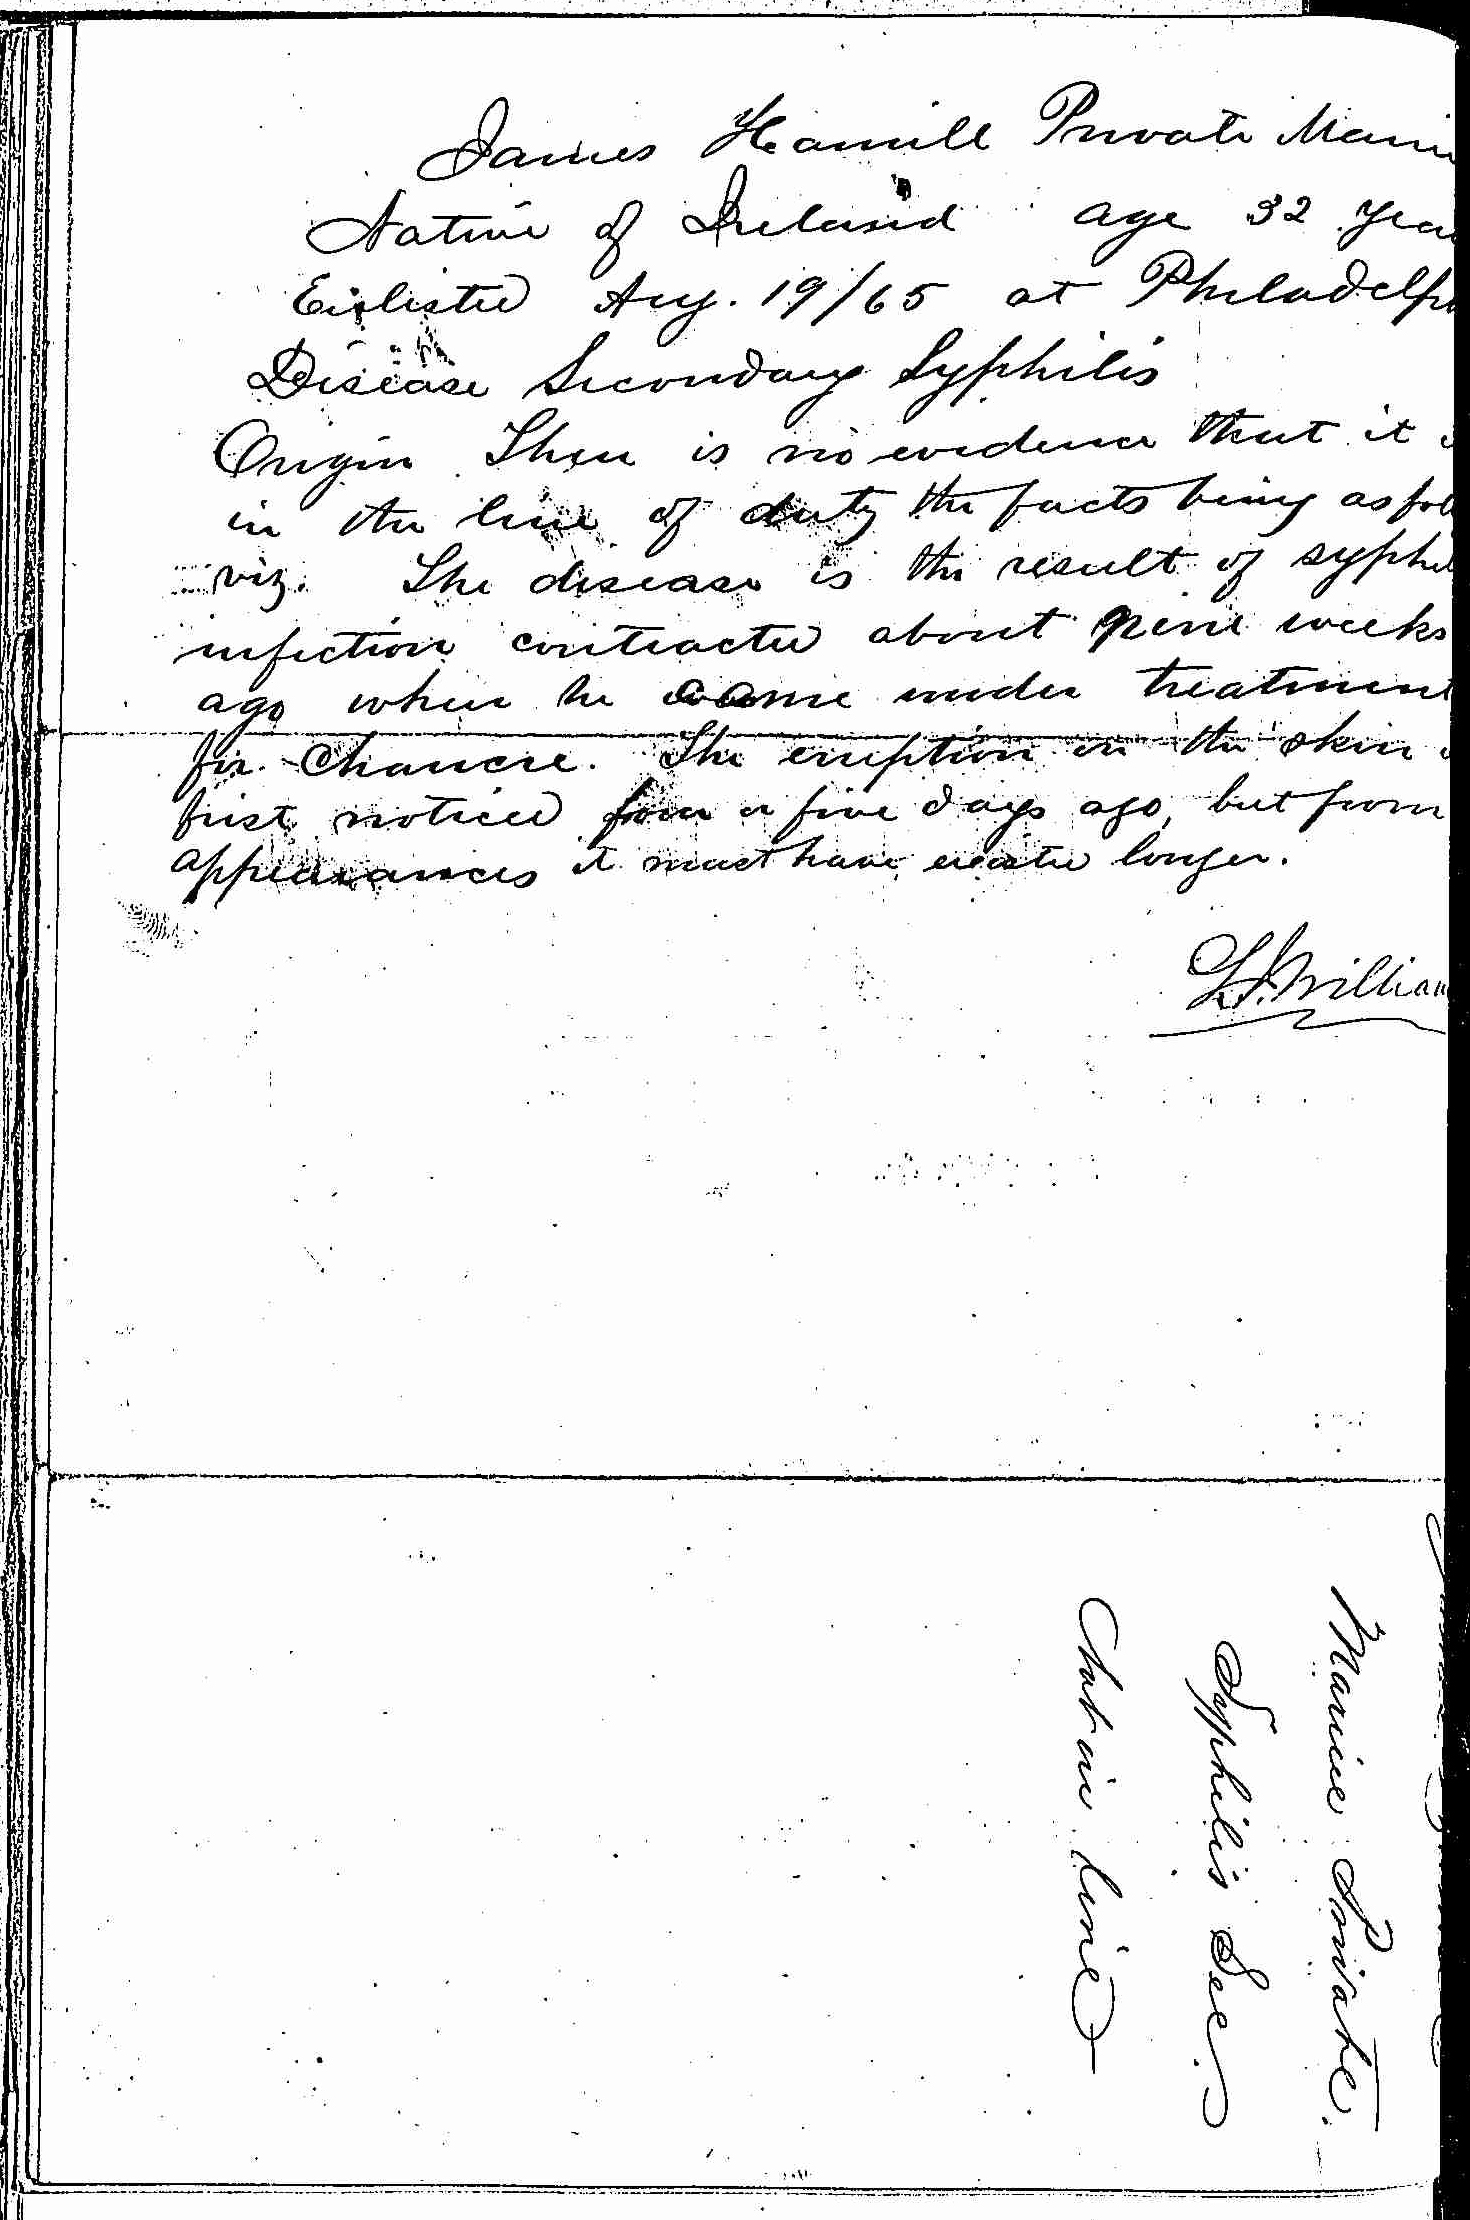 James Hamill Private Marin
Native of Ireland age 32 Yea
Enlisted Aug. 19/65 at Philadelph
Disease Secondary Syphilis
Origin There is no evidence that it
in the line of duty the facts being as fol
viz. The disease is the result of syphil
infection contracted about nine weeks
ago when he came under treatment
for Chancre. The eruption on the skin
first noticed four or five days ago, but from
appearances it must have existed longer.
Marine Private.
Syphilis Sec.
Not in line